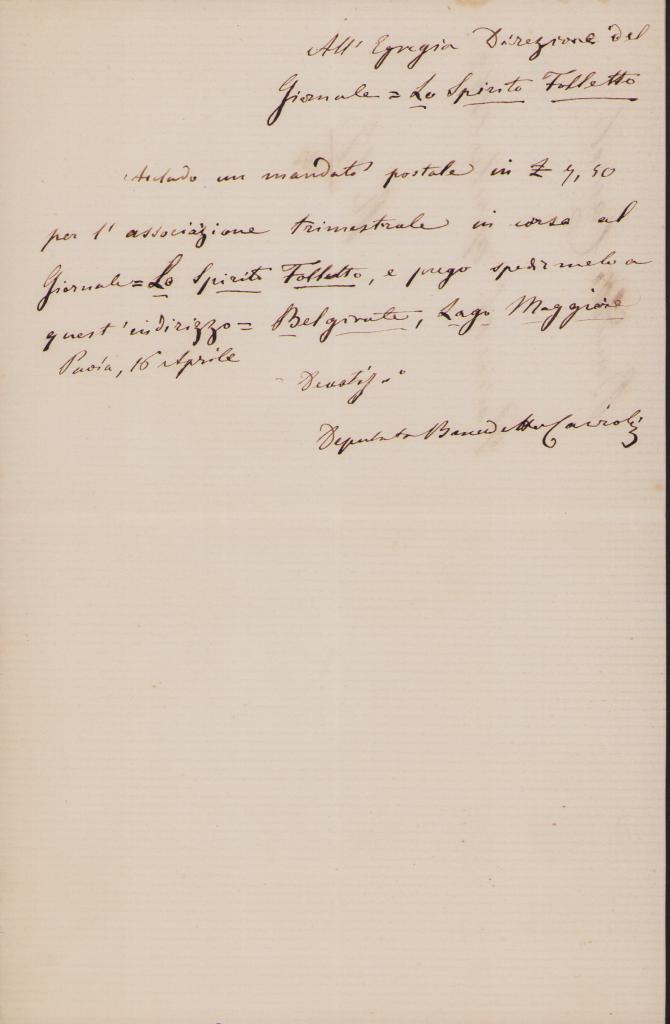 All' Egregia Direzione del
Giornale = Lo Spirito Folletto
Accludo un mandato postale in £ 7,50
per l' associazione trimestrale in corso al
Giornale = Lo Spirito Folletto, e prego spedirmelo a
quest' indirizzo = Belgirate, Lago Maggiore
Pavia, 16 Aprile
Devotis.o
Deputato Benedetto Cairoli